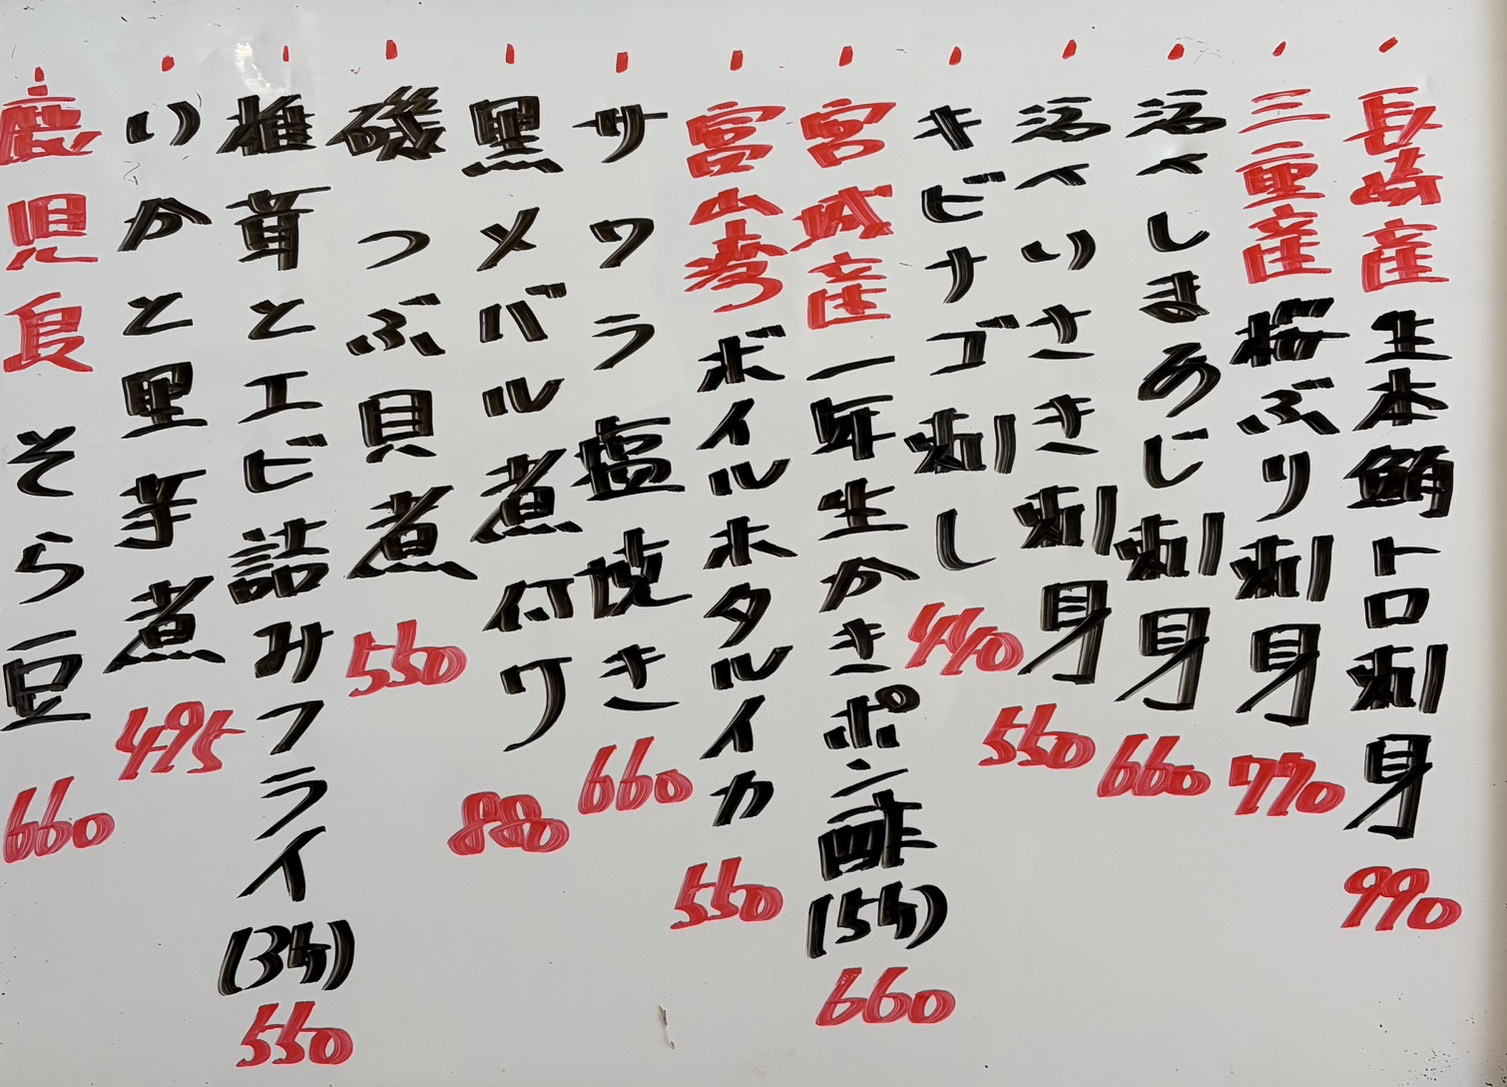 長崎産生本鮪トロ刺身 990
三重産桜ぶり刺身 770
活〆しまあじ刺身 660
活〆いさき刺身 550
キビナゴ刺し 440
宮城産一年生かきポン酢(5ケ) 660
富山産ボイルホタルイカ 550
サワラ塩焼き 660
黒メバル煮付け 880
磯つぶ貝煮 550
椎茸とエビ詰みフライ(3ケ) 550
いかと里芋煮 495
鹿児島 そら豆 660